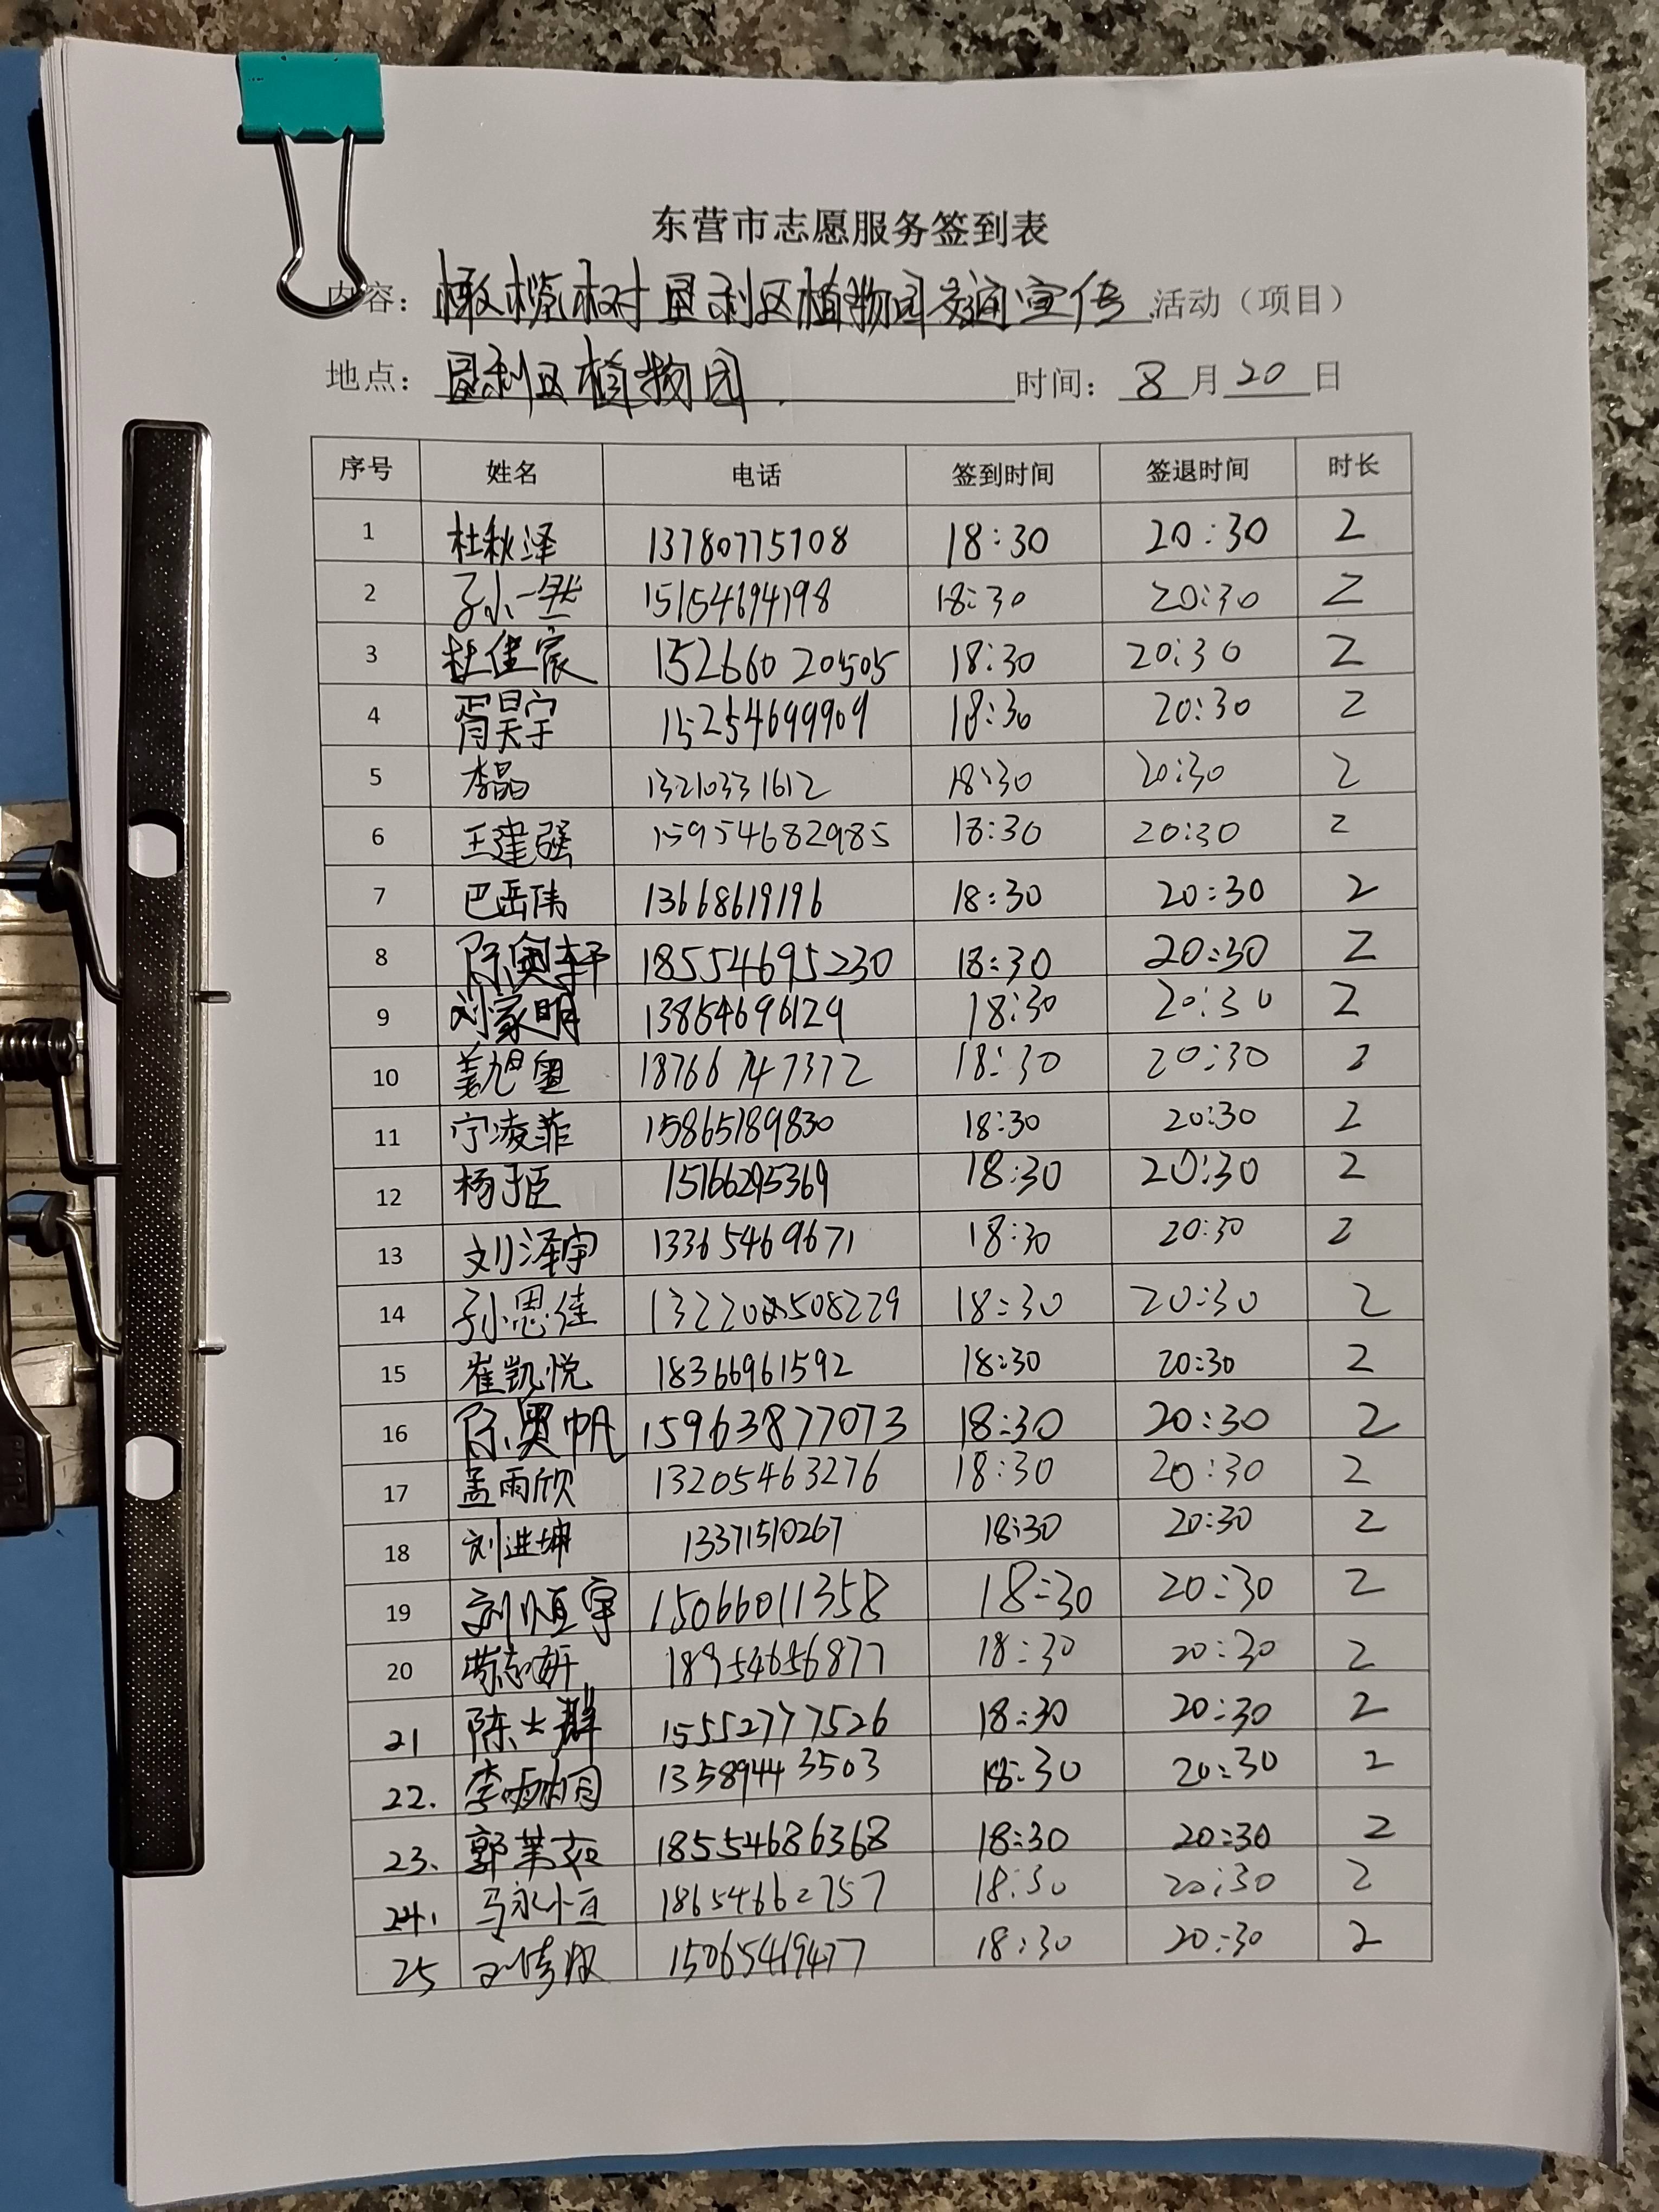 东营市志愿服务签到表
内容：橄榄树垦利区植物园交通宣传 活动（项目）
地点：垦利区植物园 时间：8月20日
序号 姓名 电话 签到时间 签退时间 时长
1 杜秋泽 13780775708 18:30 20:30 2
2 孙一然 15154694198 18:30 20:30 2
3 杜佳宸 15266020505 18:30 20:30 2
4 胥昊宇 15254699909 18:30 20:30 2
5 李晶 13210331612 18:30 20:30 2
6 王建强 15954682985 18:30 20:30 2
7 巴岳伟 13668619196 18:30 20:30 2
8 陈奥轩 18554695230 18:30 20:30 2
9 刘家明 13854696129 18:30 20:30 2
10 姜旭奥 18766747372 18:30 20:30 2
11 宁凌菲 15865189830 18:30 20:30 2
12 杨于臣 15166295369 18:30 20:30 2
13 刘泽宇 13365469671 18:30 20:30 2
14 孙思佳 18:30 20:30 2
15 崔凯悦 18366961592 18:30 20:30 2
16 陈奥帆 15963877073 18:30 20:30 2
17 孟雨欣 13205463276 18:30 20:30 2
18 刘进坤 13371510267 18:30 20:30 2
19 刘恒宇 15066011358 18:30 20:30 2
20 18954656877 18:30 20:30 2
21 陈士群 15552777526 18:30 20:30 2
22. 李雨桐 13589443503 18:30 20:30 2
23. 郭茉茹 18554686368 18:30 20:30 2
24. 马永恒 18654662757 18:30 20:30 2
25 15065419477 18:30 20:30 2